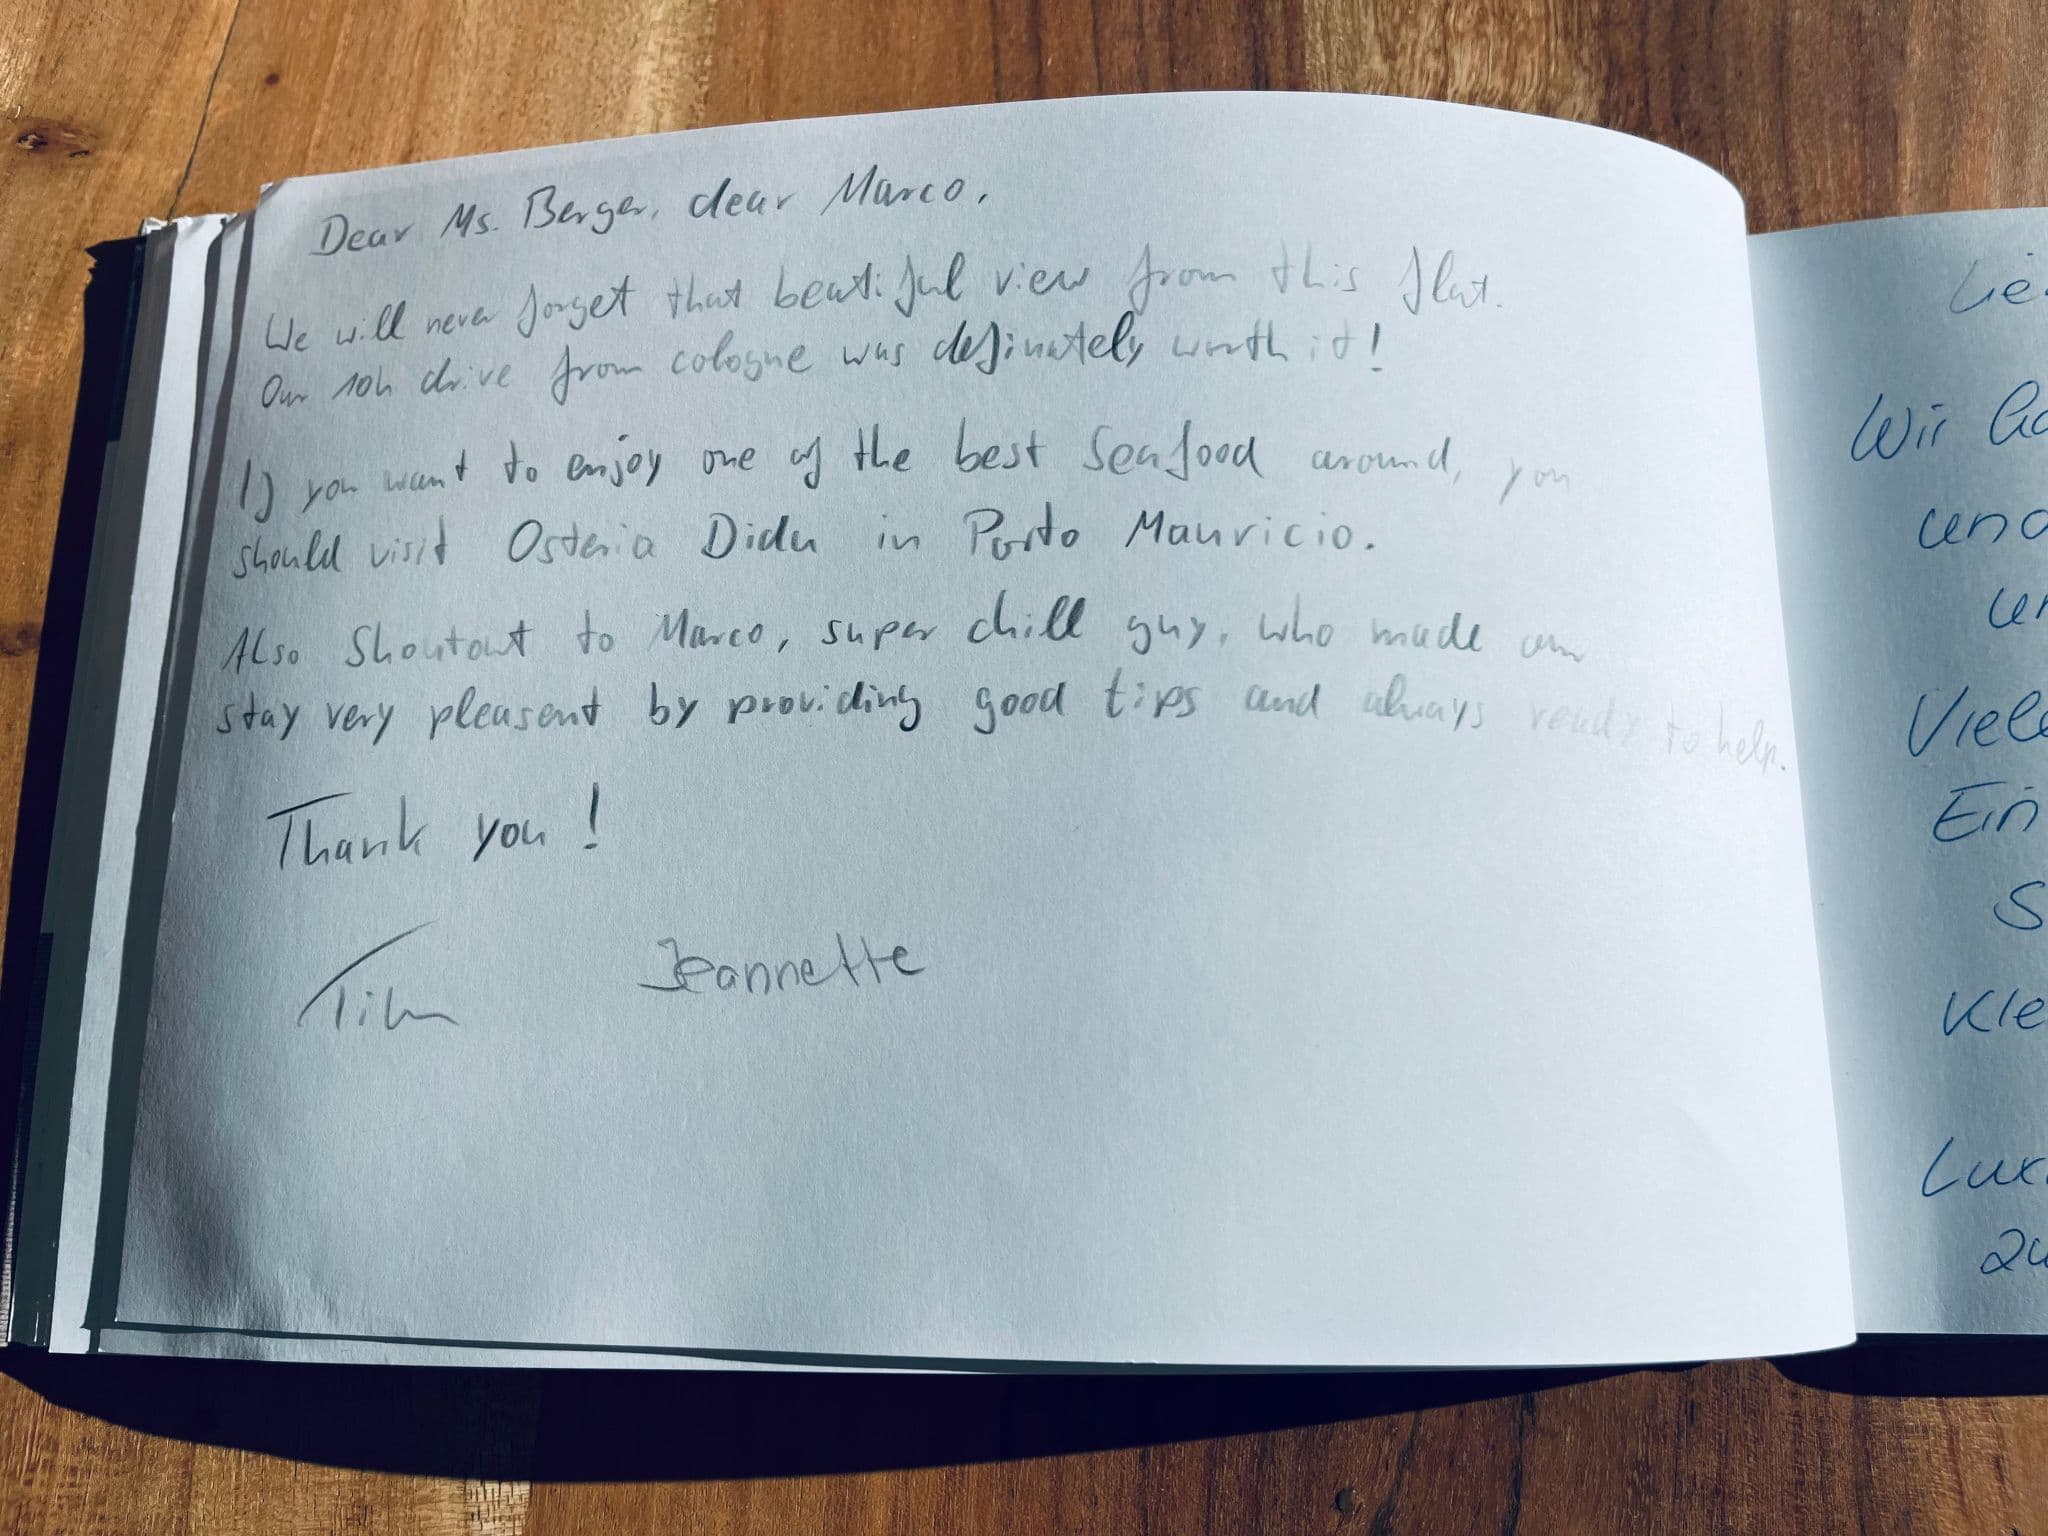 Dear Ms. Berger, dear Marco,
We will never forget that beatiful view from this flat.
Our 10h drive from cologne was definately worth it!
If you want to enjoy one of the best Seafood around, you
should visit Osteria Didu in Porto Mauricio.
Also Shoutout to Marco, super chill guy, who made our
stay very pleasent by providing good tips and always ready to help.
Thank you!
Tim Jeannette
Wir
und
Ein